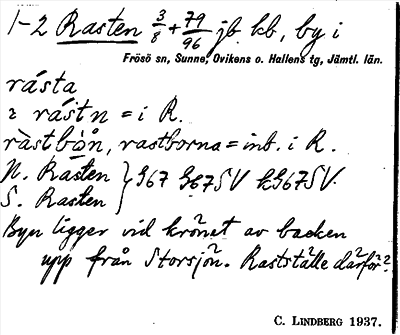 1-2 Rasten 3/8 + 79/96 jb kb, by i
Frösö sn, Sunne, Ovikens o. Hallens tg, Jämtl. län.
råsta
i råstn = i R.
råstbòn, rastborna = inb. i R.
N. Rasten } G67 G67SV kG67SV.
S. Rasten
Byn ligger vid krönet av backen
upp från Storsjön. Rastställe därför?
C. LINDBERG 1937.